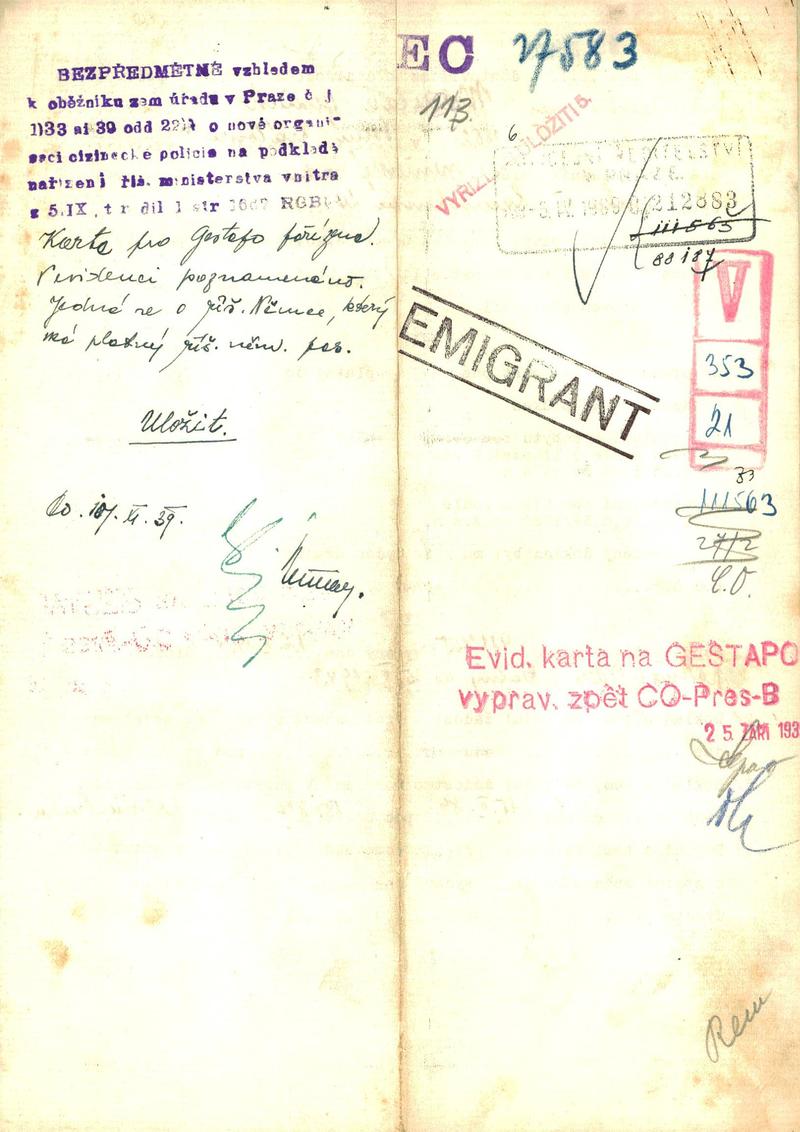 BEZPŘEDMĚTNÉ vzhledem
k oběžníku zem úřadu v Praze č j
1133 ai 39 odd o nové organi-
saci cizinecké policie na podkladě
nařízení říš. ministerstva vnitra
z 5.IX, t r díl I str RGB
Karta pro Gestapo pořízena.
V evidenci poznamenáno.
Jedná se o říš. Němce, který
má platný říš. něm. pas.
Uložit.
Do 10/XI. 39.
EC 27583
113.
6
VYŘIZ ULOŽITI 5.
ŘEDITELSTVÍ
212883
111563
88187
V
353
21
EMIGRANT
33
111563
27/2
Evid. karta na GESTAPO
vyprav. zpět CO-Pres-B
25. ZÁŘÍ 193